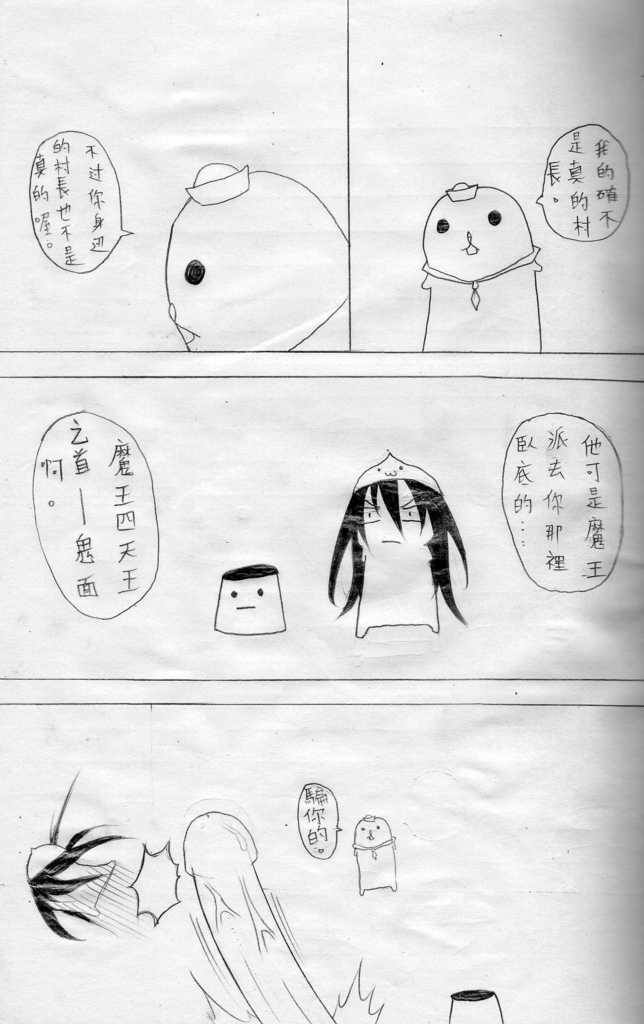 我的確不
是真的村
長。
不过你身边
的村長也不是
真的喔。
他可是魔王
派去你那裡
臥底的...
魔王四天王
之首—鬼面
啊。
騙你的。